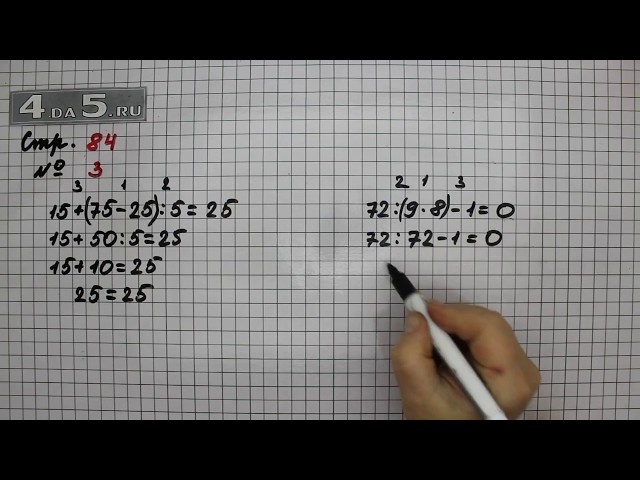 4 DA 5.RU
Стр. 84
№ 3
3 1 2
15+(75-25):5=25
15+50:5=25
15+10=25
25=25
2 1 3
72:(9·8)-1=0
72:72-1=0